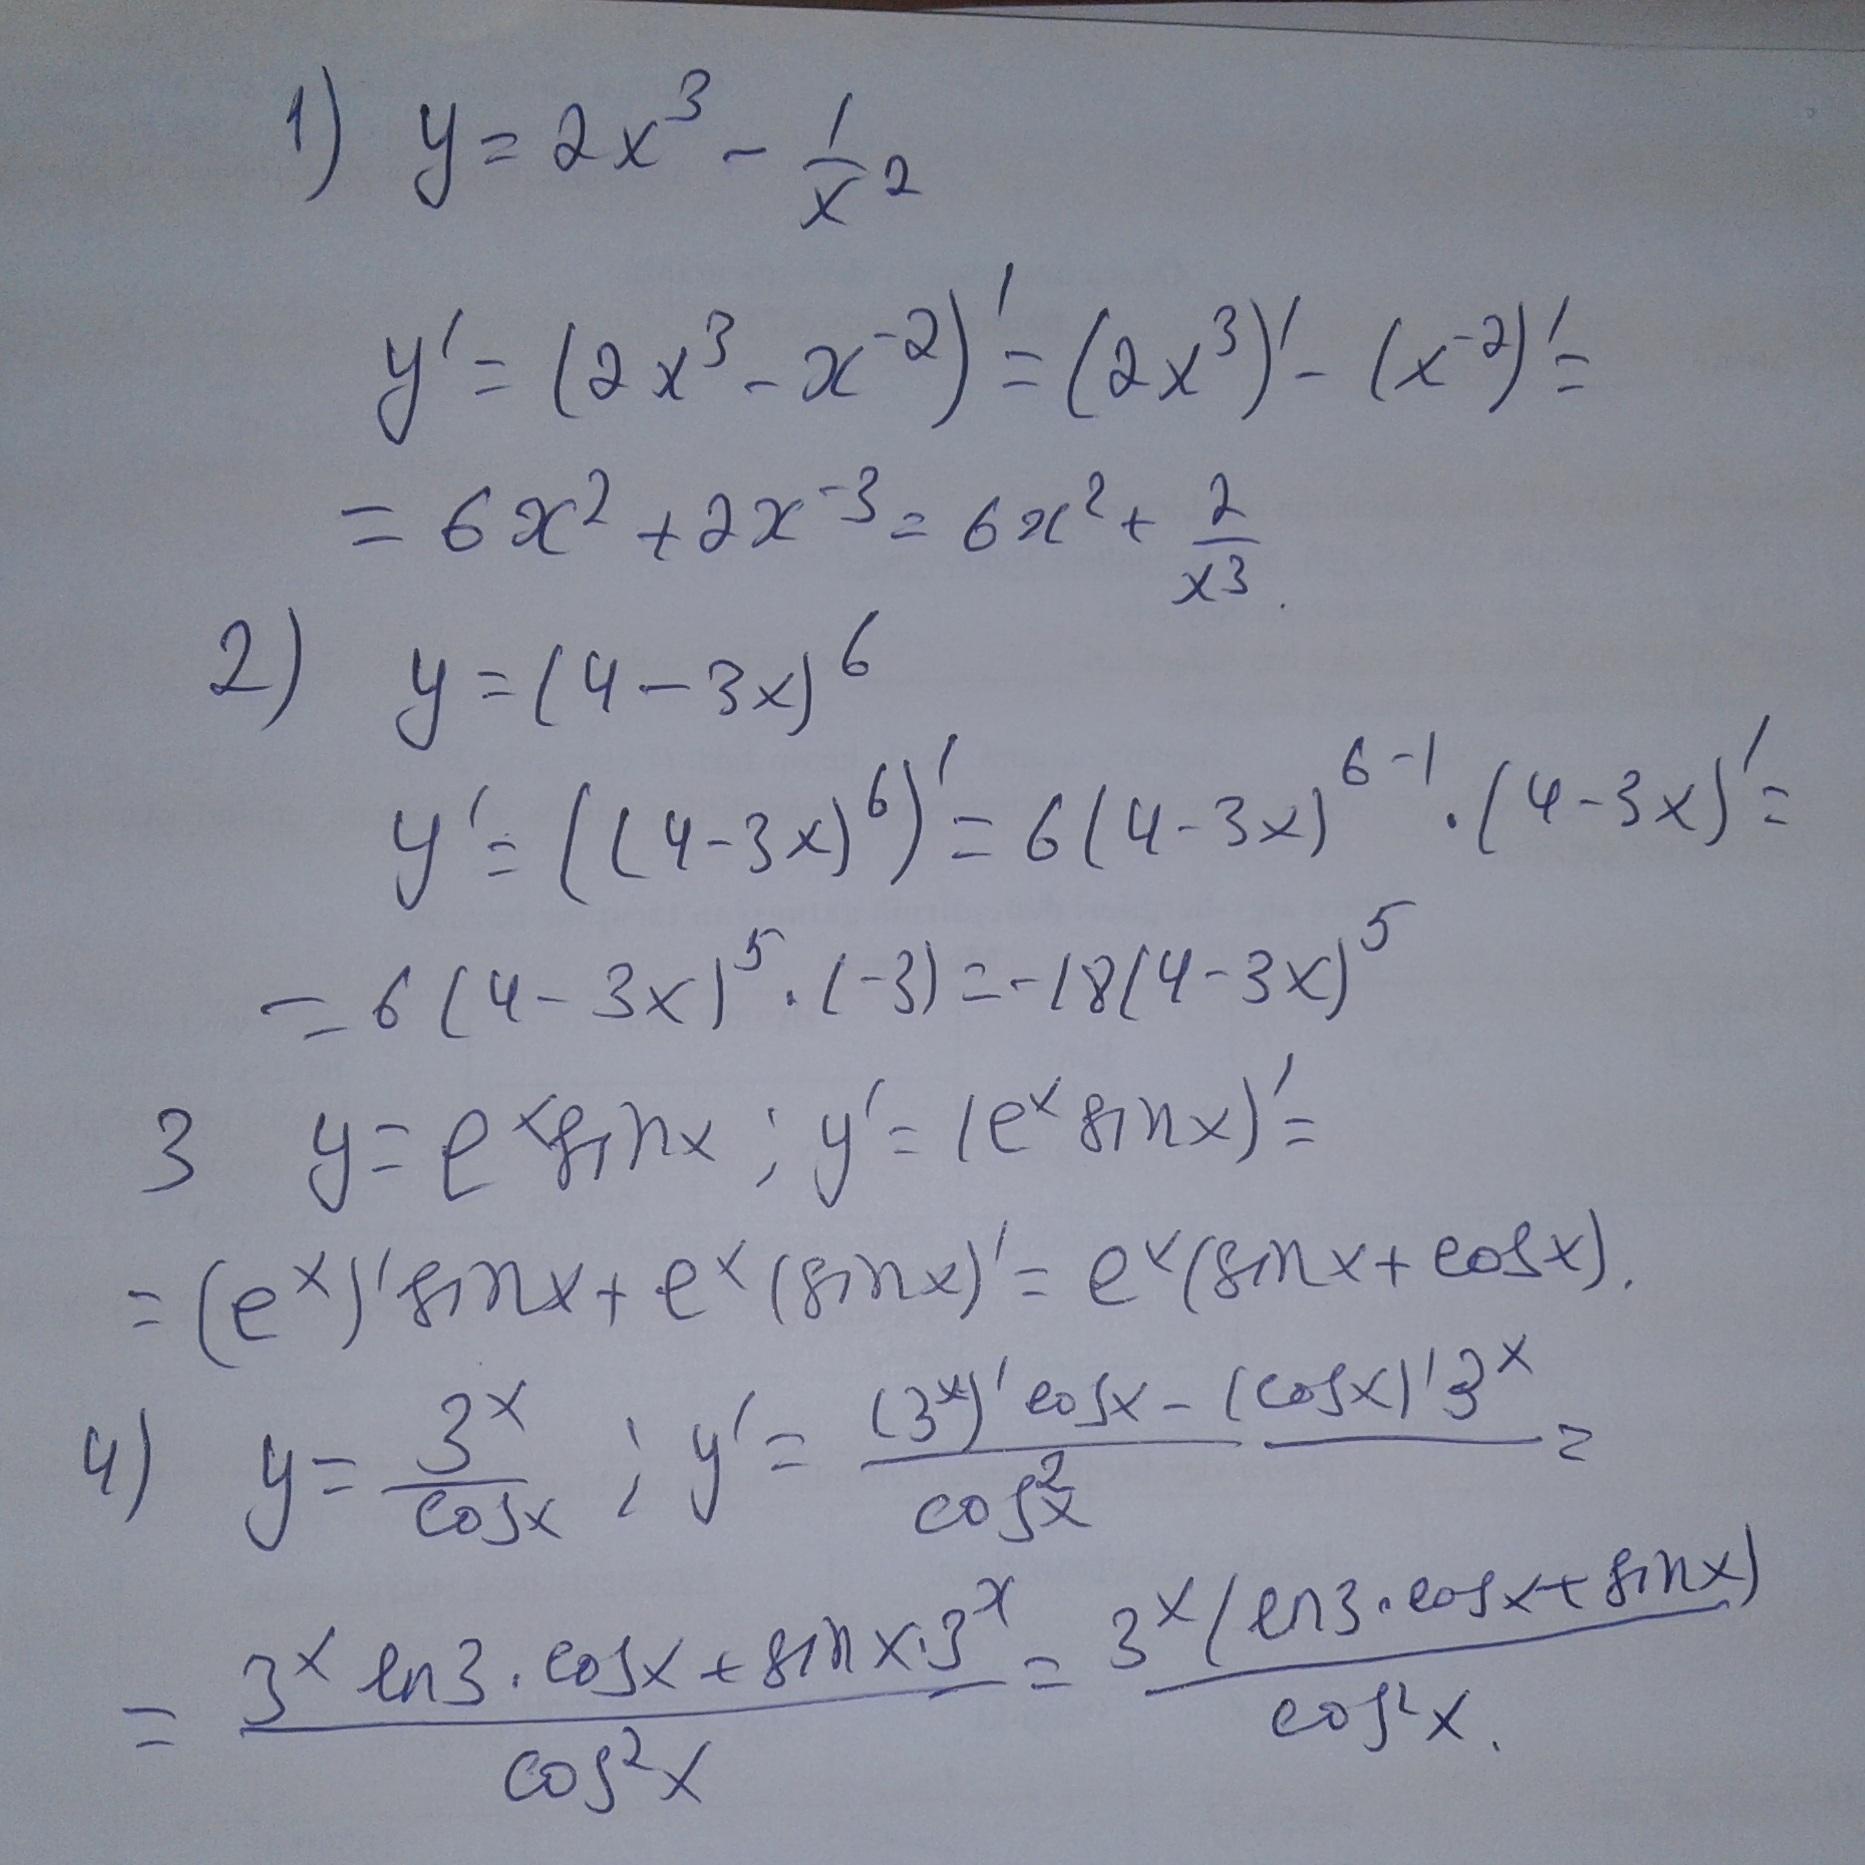 1) y = 2x³ - 1/x²
y' = (2x³ - x⁻²)' = (2x³)' - (x⁻²)' =
= 6x² + 2x⁻³ = 6x² + 2/x³.
2) y = (4 - 3x)⁶
y' = ((4-3x)⁶)' = 6(4-3x)⁶⁻¹ · (4-3x)' =
= 6(4-3x)⁵ · (-3) = -18(4-3x)⁵
3 y = eˣ sinx ; y' = (eˣ sinx)' =
= (eˣ)' sinx + eˣ (sinx)' = eˣ(sinx + cosx).
4) y = 3ˣ/cosx ; y' = ((3ˣ)' cosx - (cosx)' 3ˣ)/cos²x =
= (3ˣ ln3 · cosx + sinx · 3ˣ)/cos²x = 3ˣ(ln3 · cosx + sinx)/cos²x.